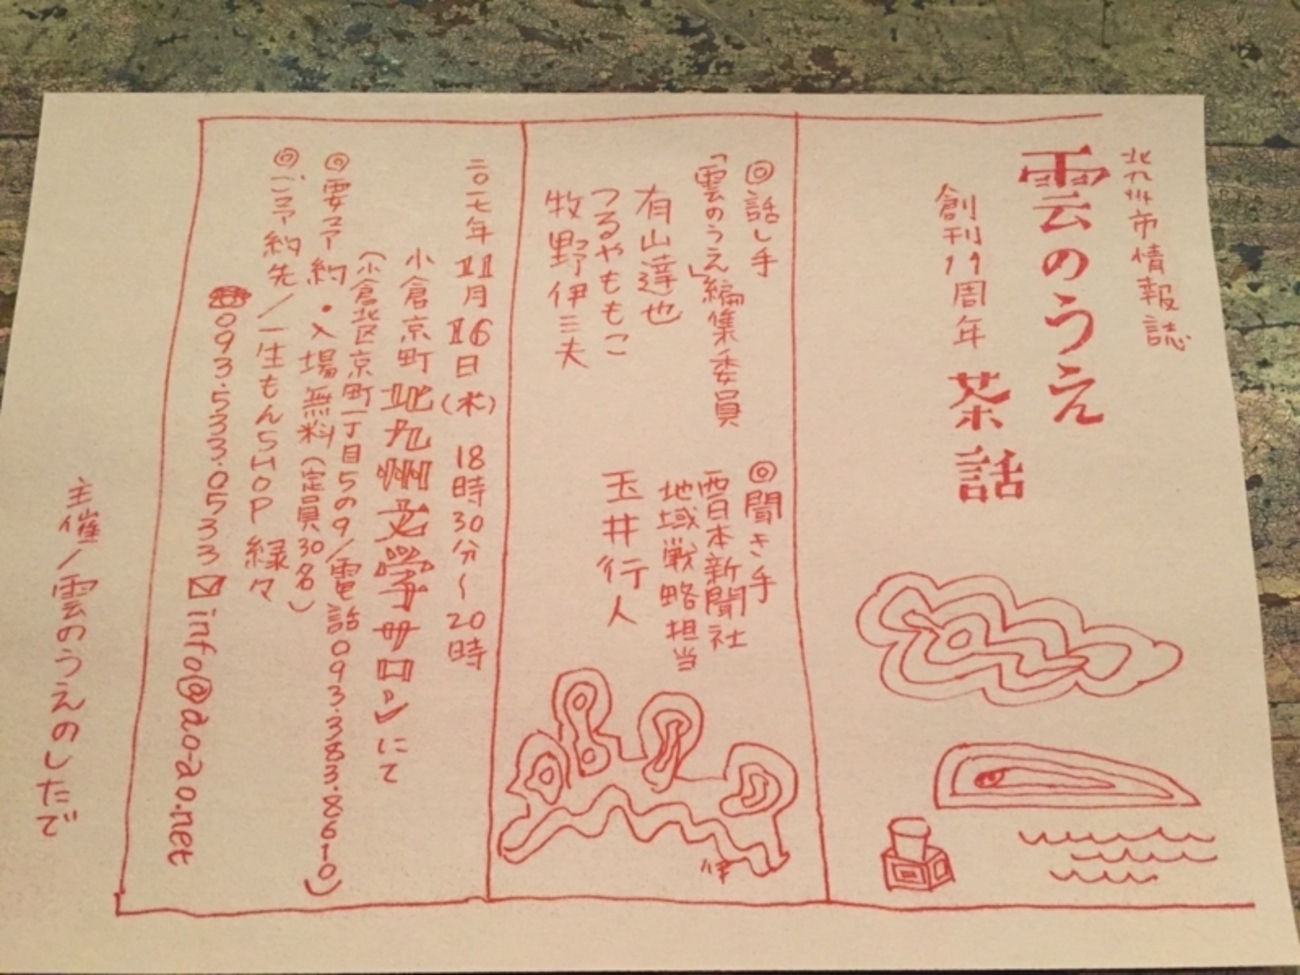 北九州市情報誌
雲のうえ
創刊11周年 茶話
◎話し手
「雲のうえ」編集委員
有山達也
つるやももこ
牧野伊三夫
◎聞き手
西日本新聞社
地域戦略担当
玉井行人
伊
二〇一七年11月16日(木) 18時30分〜20時
小倉京町 北九州文学サロンにて
(小倉北区京町一丁目5の9/電話093.383.8610)
◎要予約・入場無料(定員30名)
◎ご予約先/一生もんSHOP 緑々
☎093.533.0533 ✉info@ao-ao.net
主催/雲のうえのしたで